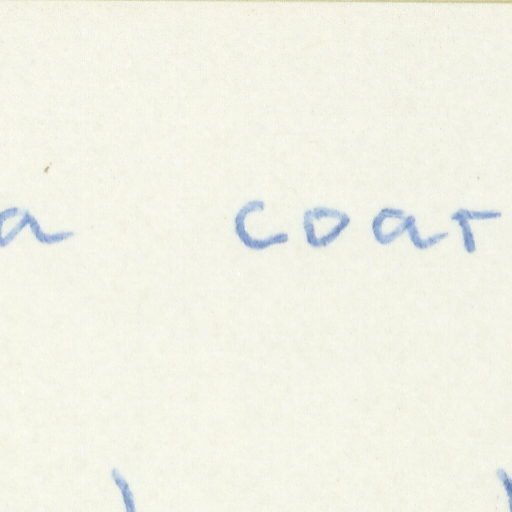 a coar